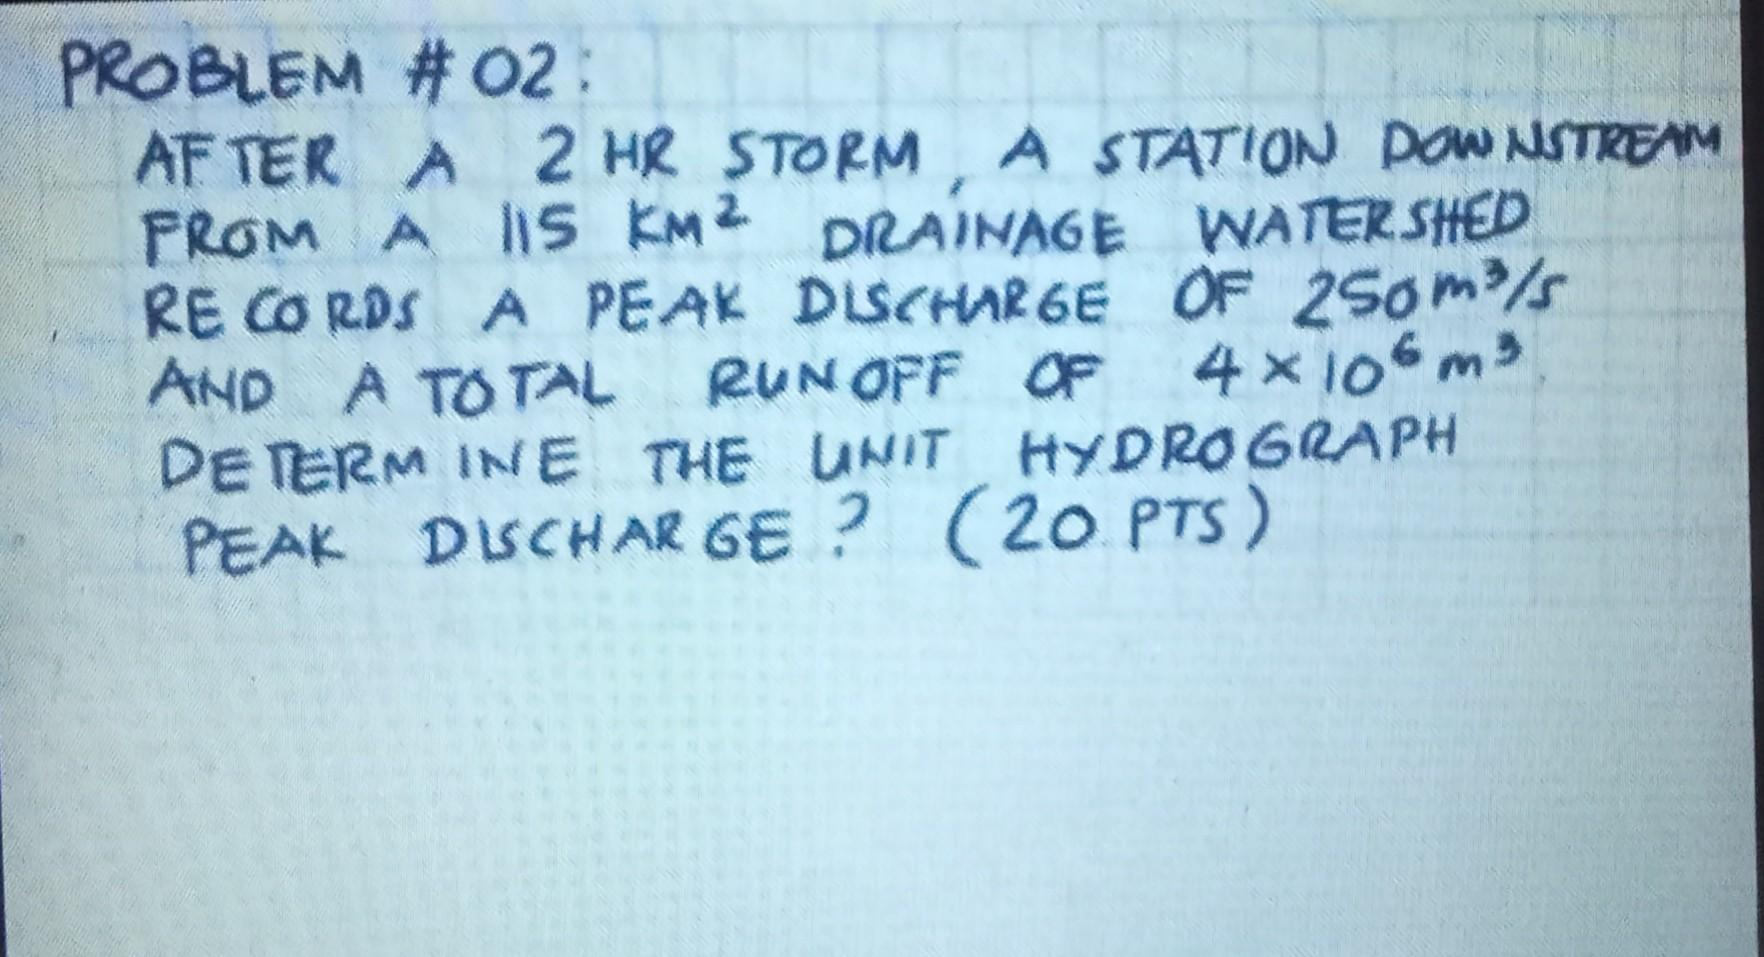 PROBLEM #02:
AFTER A 2 HR STORM, A STATION DOWNSTREAM
FROM A 115 KM² DRAINAGE WATERSHED
RECORDS A PEAK DISCHARGE OF 250 m³/s
AND A TOTAL RUNOFF OF 4 × 10⁶ m³.
DETERMINE THE UNIT HYDROGRAPH
PEAK DISCHARGE? (20 PTS)